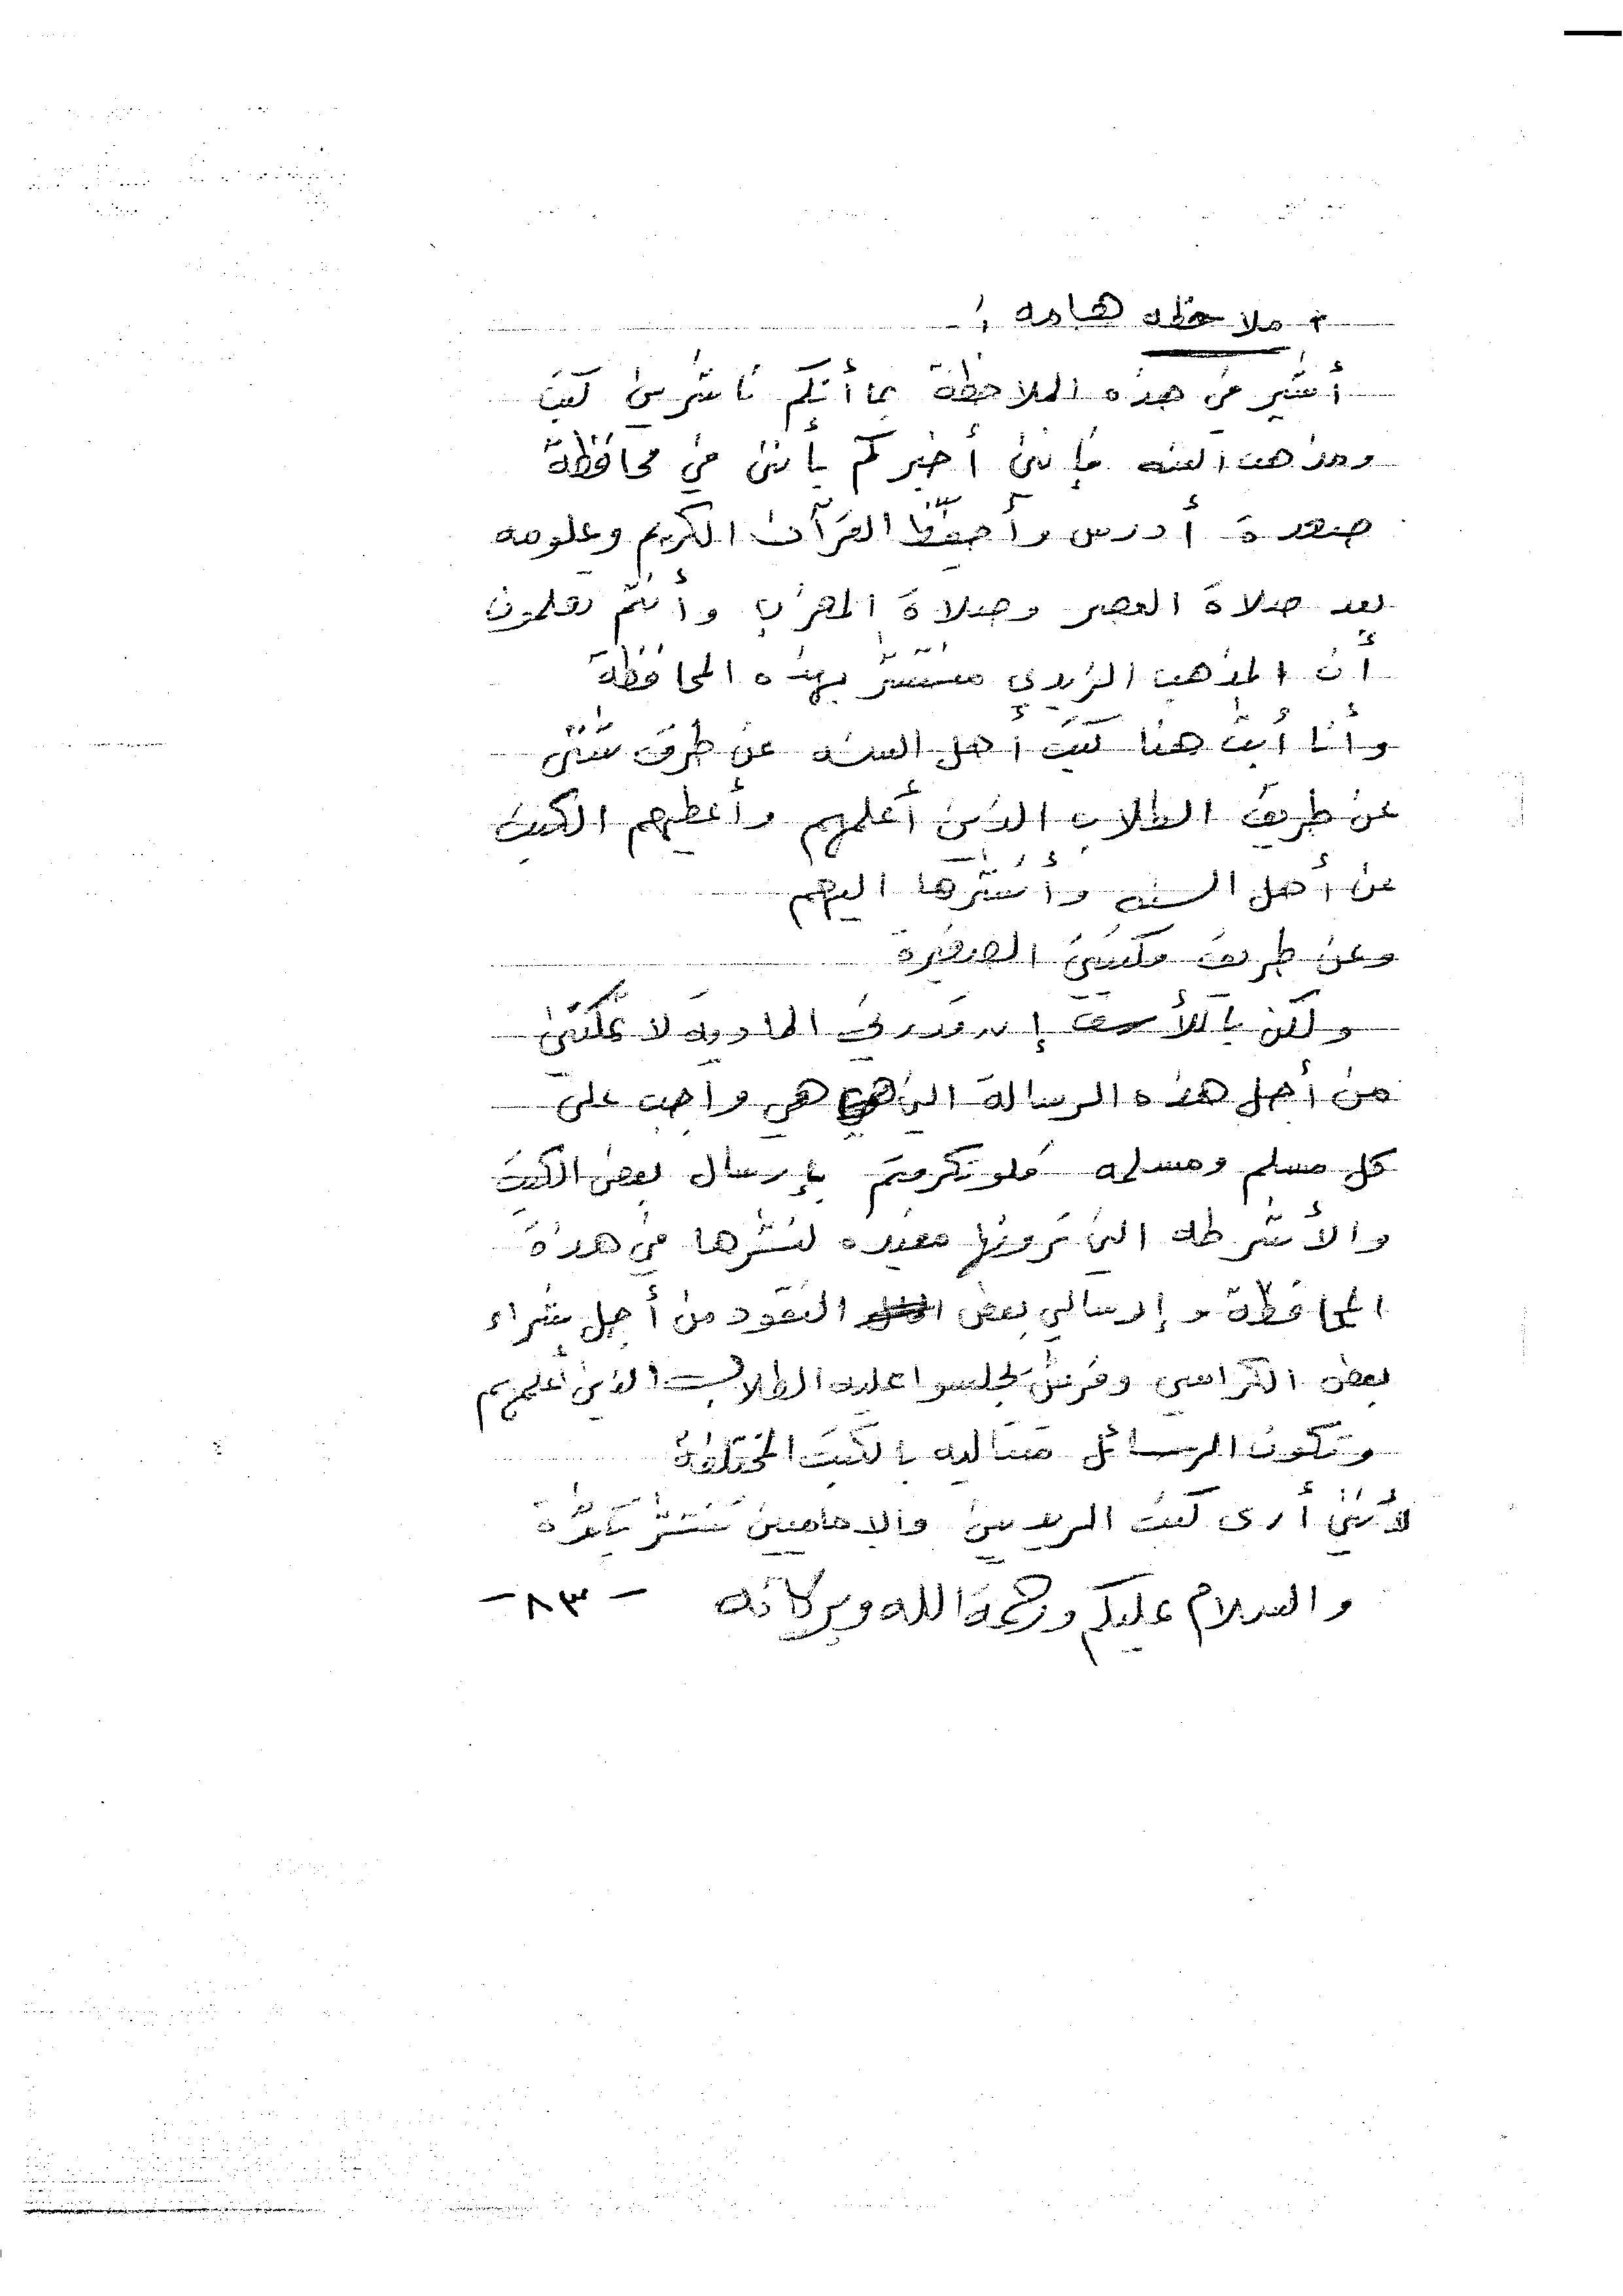 + ملاحظه هامه :-
أشير في هذه الملاحظة بما أنكم ناشرين كتب
ومذهب السنه فإنني أخبركم بأنني في محافظة
صعدة أدرس وأحفِّظ القرآن الكريم وعلومه
بعد صلاة العصر وصلاة المغرب وأنتم تعلمون
أن المذهب الزيدي منتشر بهذه المحافظة
وأنا أبث هنا كتب أهل السنه عن طرق شتى
عن طريق الطلاب الذين أعلمهم وأعطيهم الكتب
عن أهل السنه وأنشرها اليهم
وعن طريق مكتبتي الصغيرة
ولكن باللأسف إن مقدرتي الماديه لا تمكنني
من أجل هذه الرسالة التي هي واجب على
كل مسلم ومسلمه فلو تكرمتم بإرسال بعض الكتب
والأشرطه التي ترونها مفيده لنشرها في هذة
المحافظة وإرسالي بعض النقود من أجل شراء
بعض الكراسي وفرش يجلسوا عليه الطلاب الذين أعلمهم
وتكون الرسائل متتاليه بالكتب المختلفة
لأنني أرى كتب الزيديين والإماميين تنتشر بكثرة
والسلام عليكم ورحمة الله وبركاته - ٨٣ -